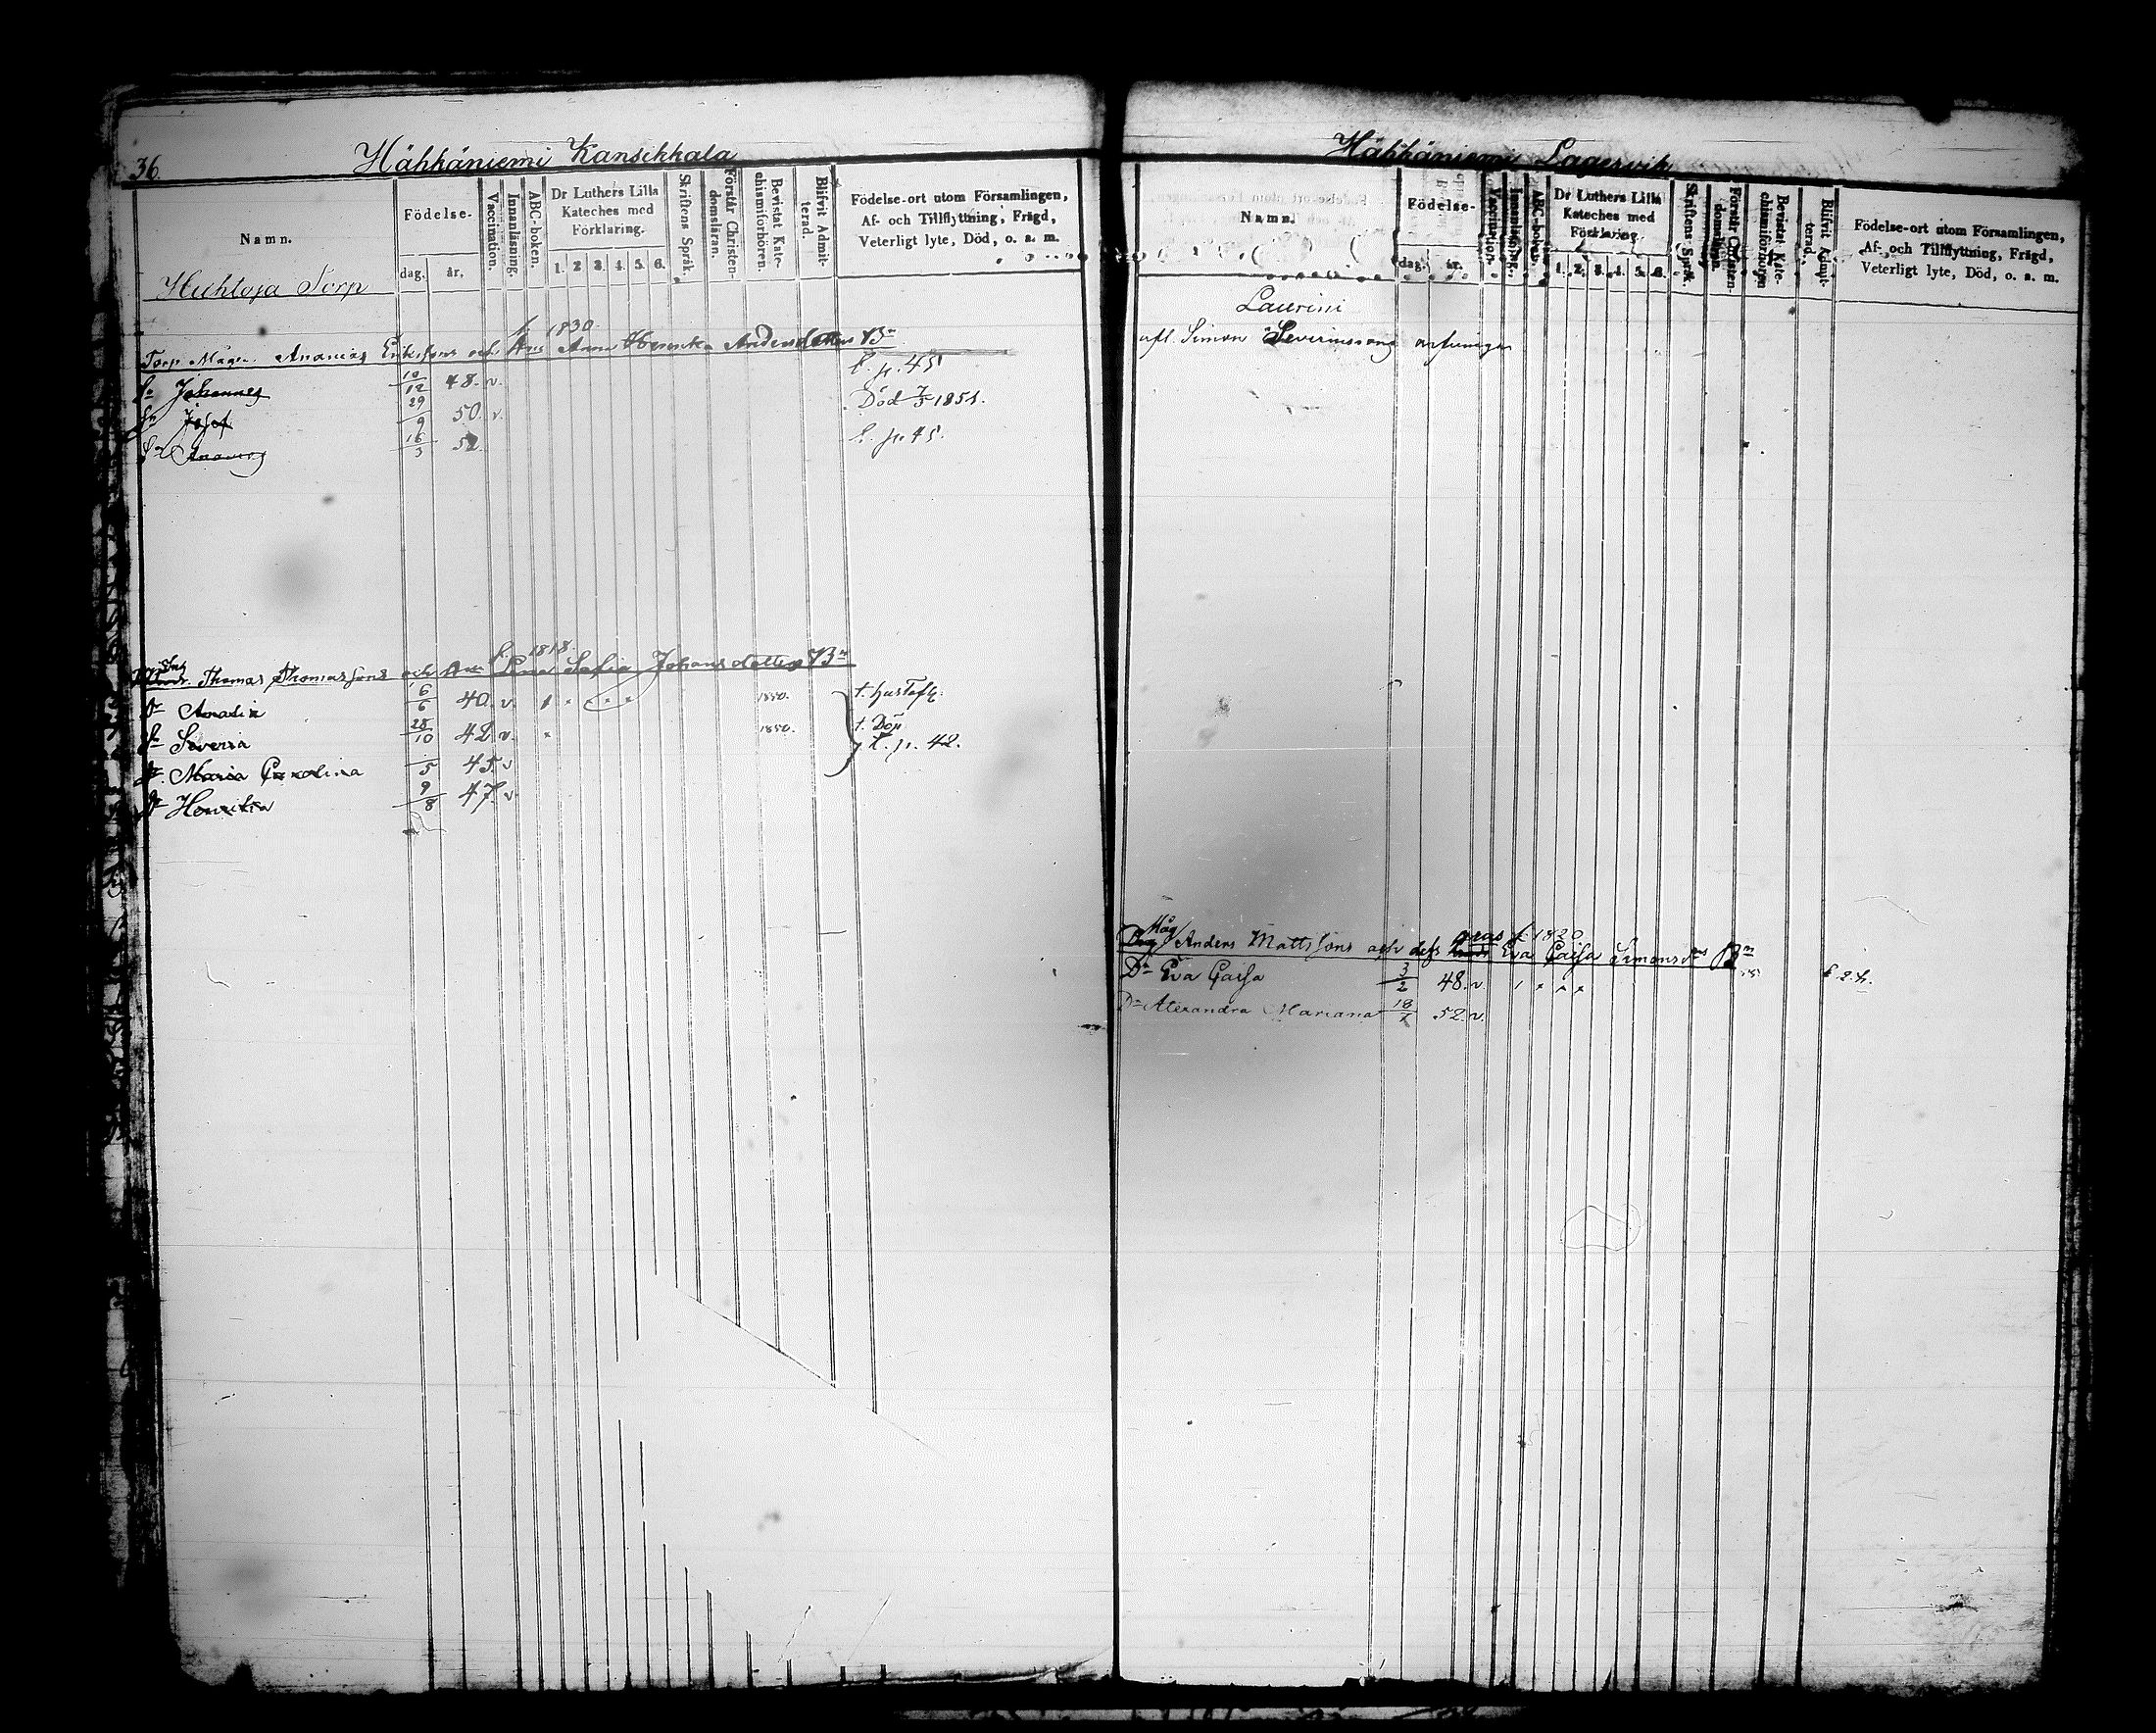 36.
Hähkäniemi Kansikkala
Namn.
Födelse-
dag. år.
Vaccination.
Innanläsning.
ABC-boken.
Dr Luthers Lilla
Kateches med
Förklaring.
1. 2. 3. 4. 5. 6.
Skriftens Språk.
Förstår Christen-
domsläran.
Bevistat Kate-
chismiförhören.
Blifvit Admit-
terad.
Födelse-ort utom Församlingen,
Af- och Tillflyttning, Frägd,
Veterligt lyte, Död, o. s. m.
Huhtoja Torp
f. 1830.
Torp. Mågen Ananias Eriksons och Anna Henrika Andersdotters Bn
Sn Johannes 10/12 48. v. t. p. 45
Sn Josef 29/9 50. v. Död 1851.
Sn Ananias 16/3 52. t. p. 45.
f. 1818.
Thomas Thomassons och Lena Sofia Johansdotters Bn
Dr Amalia 6/6 40. v. 1850. t. Gustafs.
Sn Severia 28/10 42. v. 1850. t. Död
Dr Maria Carolina /5 45. v t. p. 42.
Dr Henrika 9/8 47. v
Hähkäniemi Lagervik
Namn.
Födelse-
dag. år.
Vaccination.
Innanläsning.
ABC-boken.
Dr Luthers Lilla
Kateches med
Förklaring.
1. 2. 3. 4. 5. 6.
Skriftens Språk.
Förstår Christen-
domsläran.
Bevistat Kate-
chismiförhören.
Blifvit Admit-
terad.
Födelse-ort utom Församlingen,
Af- och Tillflyttning, Frägd,
Veterligt lyte, Död, o. s. m.
Laurini
afl. Simon Severinssons arfvingar
Måg
f. 1820
Anders Mattssons och dess Eva Caisa Simonsdrs Bn
Dr Eva Caisa 3/2 48. v.
Dr Alexandra Mariana 18/ 52. v.